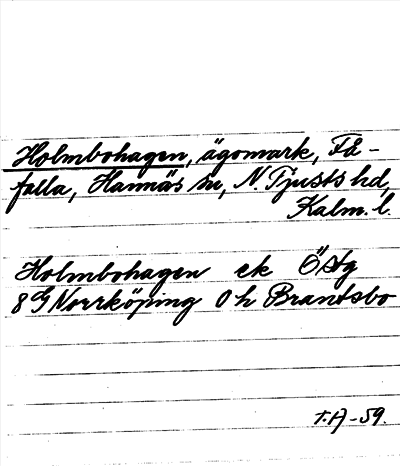 Holmbohagen, ägomark, Få-
falla, Hannäs sn, N. Tjusts hd,
Kalm. l.
Holmbohagen ek Östg
8G Norrköping 0h Brantsbo
T.A-59.